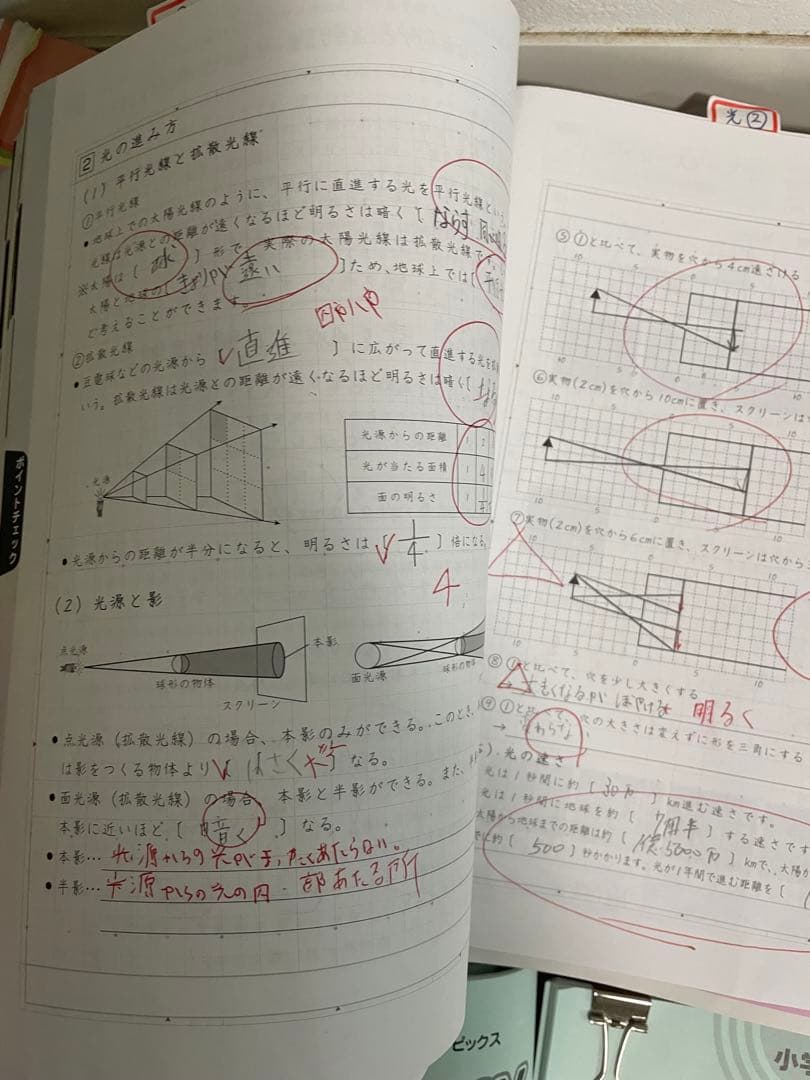 光②
② 光の進み方
(1) 平行光線と拡散光線
①平行光線
●地球上での太陽光線のように、平行に直進する光を平行光線という
光線は光源との距離が遠くなるほど明るさは暗く[ ならず
※太陽は[ 球 ]形で、実際の太陽光線は拡散光線です。
太陽と地球の[ きょりが 遠い ]ため、地球上では[ 平
ど考えることができます。
②拡散光線
●豆電球などの光源から[ 直進 ]に広がって直進する光を拡
いう。拡散光線は光源との距離が遠くなるほど明るさは暗く[ なる
光源
光源からの距離 1 2
光が当たる面積 1 4
面の明るさ 1 1/4
●光源からの距離が半分になると、明るさは[ 1/4 ]倍になる。
4
(2) 光源と影
点光源
球形の物体
スクリーン
本影
面光源
球形の物体
●点光源(拡散光線)の場合、本影のみができる。このとき、
は影をつくる物体より[ 小さく 大きく ]なる。
●面光源(拡散光線)の場合、本影と半影ができる。また、
本影に近いほど、[ 暗く ]なる。
●本影…光源からの光がまったくあたらない。
●半影…光源からの光の内一部あたる所
ポイントチェック
⑤①と比べて、実物を穴から4cm遠ざける
10 5 0 5 10
⑥実物(2cm)を穴から10cmに置き、スクリーンは
10 5 0 5 10
⑦実物(2cm)を穴から6cmに置き、スクリーンは穴から
10 5 0 5 10
⑧①と比べて、穴を少し大きくする
なるが ぼやける 明るく
⑨①と比べて、穴の大きさは変えずに形を三角にする
→ 変わらない
).光の速さ
光は1秒間に約[ 30万 ]km進む速さです。
光は1秒間に地球を約[ 7周半 ]する速さです
太陽から地球までの距離は約[ 1億5000万 ]kmで、太陽か
に約[ 500 ]秒かかります。光が1年間で進む距離を[
ピックス
小学